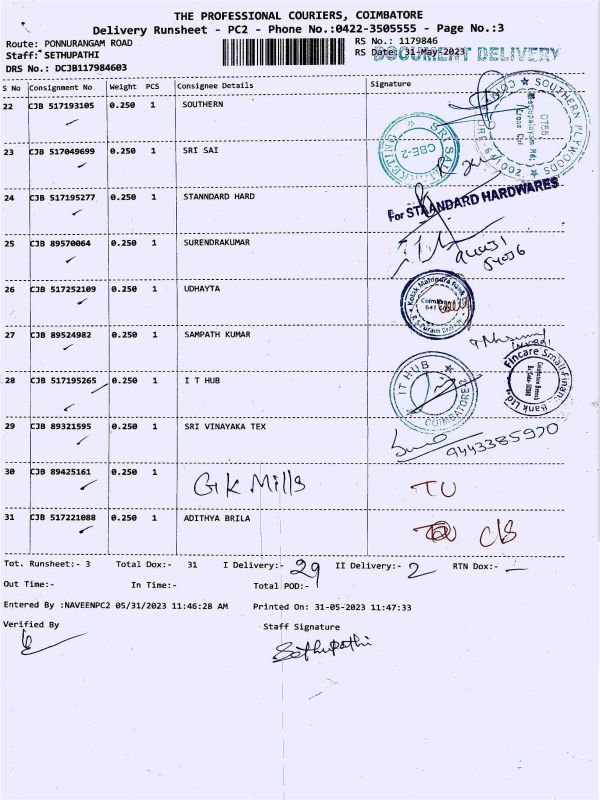 THE PROFESSIONAL COURIERS, COIMBATORE
Delivery Runsheet - PC2 - Phone No.:0422-3505555 - Page No.:3
Route: PONNURANGAM ROAD
RS No.: 1179846
Staff: SETHUPATHI
RS Date: 31-May-2023
DOCUMENT DELIVERY
DRS No.: DCJB117984603
S No Consignment No Weight PCS Consignee Details Signature
22 CJB 517193105 0.250 1 SOUTHERN
SOUTHERN PLYWOODS
23 CJB 517049699 0.250 1 SRI SAI
SRI SAI
CBE-2
24 CJB 517195277 0.250 1 STANNDARD HARD
For STAANDARD HARDWARES
25 CJB 89570064 0.250 1 SURENDRAKUMAR
26 CJB 517252109 0.250 1 UDHAYTA
Kotak Mahindra Bank
27 CJB 89524982 0.250 1 SAMPATH KUMAR
Fincare Small Finance Bank Ltd
28 CJB 517195265 0.250 1 I T HUB
IT HUB
COIMBATORE
29 CJB 89321595 0.250 1 SRI VINAYAKA TEX
9443385970
30 CJB 89425161 0.250 1 GK Mills TU
31 CJB 517221088 0.250 1 ADITHYA BRILA C/S
Tot. Runsheet:- 3 Total Dox:- 31 I Delivery:- 29 II Delivery:- 2 RTN Dox:- –
Out Time:- In Time:- Total POD:-
Entered By :NAVEENPC2 05/31/2023 11:46:28 AM Printed On: 31-05-2023 11:47:33
Verified By Staff Signature
Sethupathi